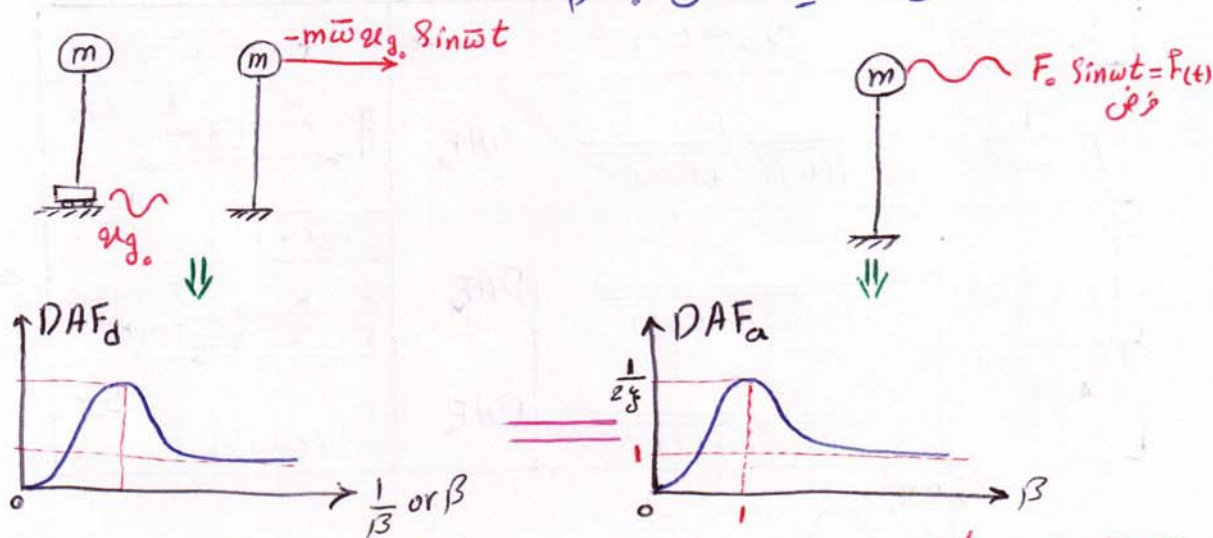 m
m
-m ω̄ u_g₀ Sin ω̄ t
m
F₀ Sin ω̄ t = F(t)
فرض
u_g₀
DAF_d
0
1/β or β
DAF_a
1/2ξ
1
0
1
β